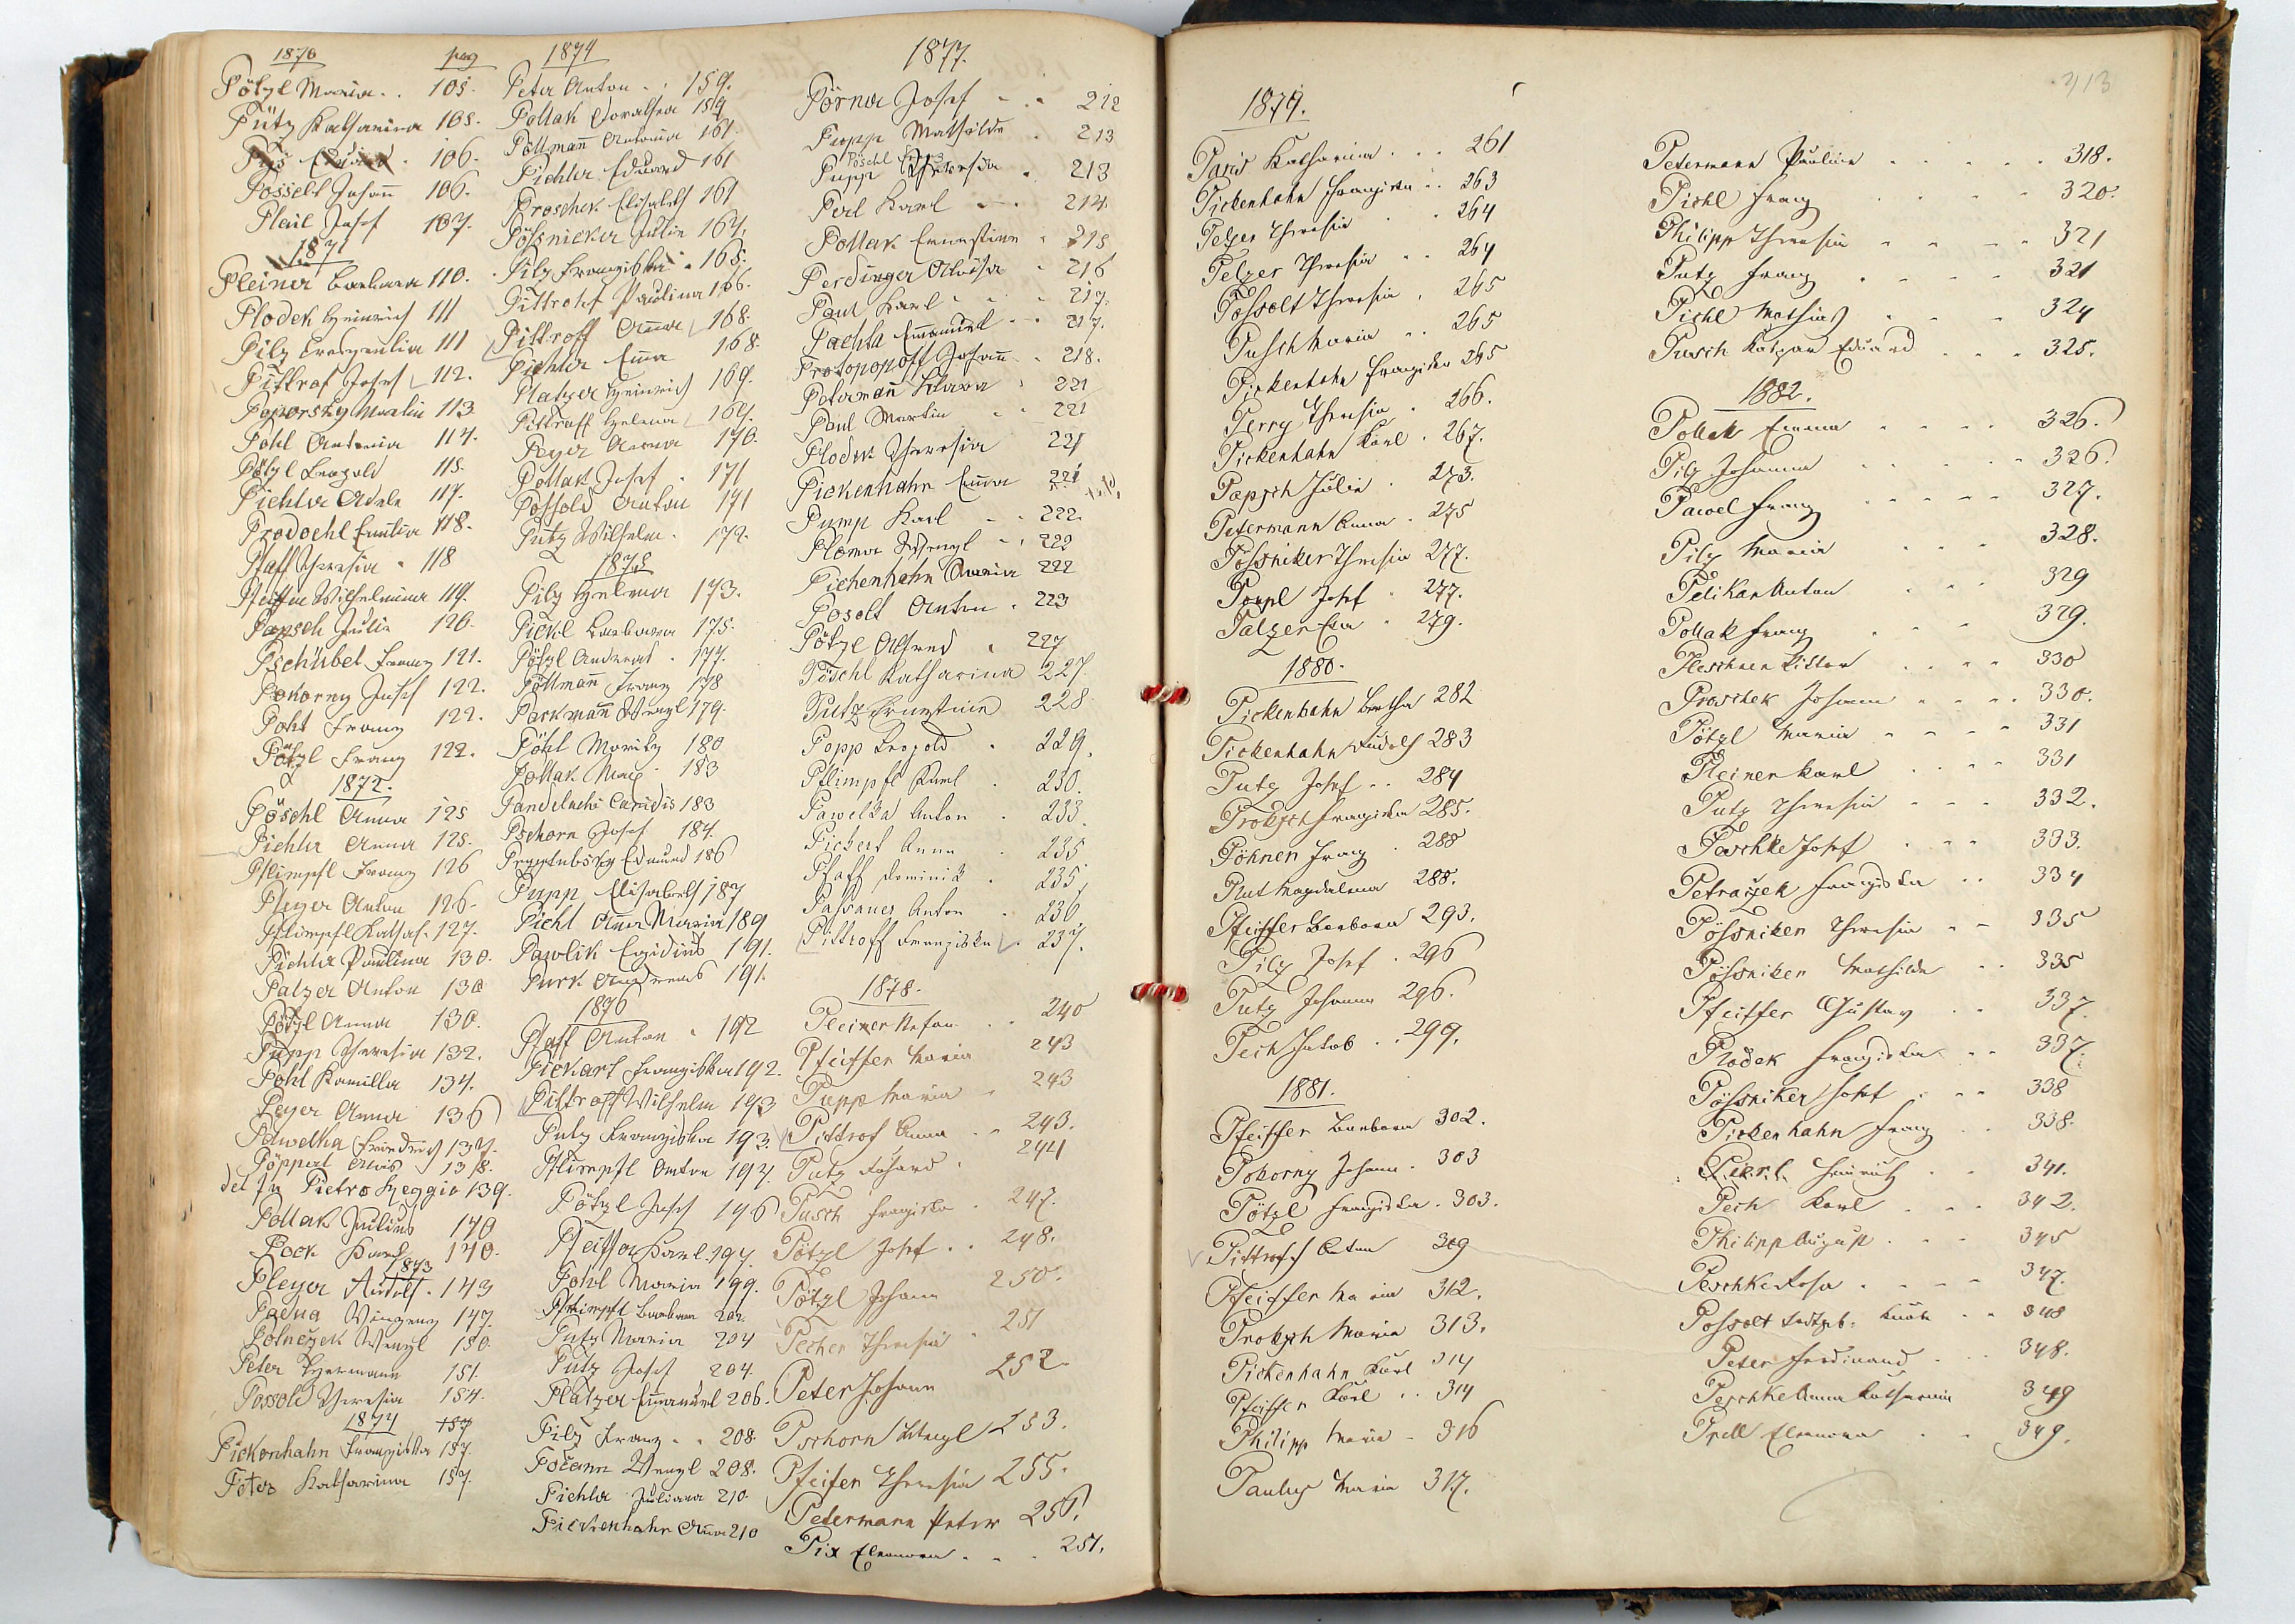 1870 pag
Pötzl Maria . . 105.
Pütz Katharina 105.
106.
Posselt Johann 106.
Pleil Josef 107.
1871
Pleiner Barbara 110.
Plodek Heinrich 111
Pilz Creszentia 111
Pittrof Josef 112.
Poporsky Martin 113.
Pohl Antonia 114.
Pötzl Leopold 115.
Pichler Adele 117.
Prodoehl Emilia 118.
Pfaff Theresia 118
Pfeiffer Wilhelmina 119.
Papsch Julie 120.
Pschübel Franz 121.
Pokorny Josef 122.
Poht Franz 122.
Pötzl Franz 122.
1872.
Pöschl Anna 125
Pichler Anna 125.
Pflimpfl Franz 126
Pleyer Anton 126.
Pflimpfl Kathar. 127.
Pichler Paulina 130.
Palzer Anton 130
Pötzl Anna 130.
Pupp Theresia 132.
Pohl Kamilla 134.
Peyer Anna 136
Pawelka Friedrich 137.
Pöppert Alois 138.
del Pietro Heggio 139.
Pollak Julius 140
Pock Karl 140.
1873
Pleyer Rudolf . 143
Padua Vinzenz 147.
Polneczek Wenzl 150.
Peter Hermann 151.
Possold Theresia 154.
1874 157
Pickenhahn Franziska 157.
Peter Katharina 157.
1874
Peter Anton . . 159.
Pollak Dorothea 159
Pollmann Antonia 161.
Pichler Eduard 161
Proschek Elisabeth 161
Pössnicker Julie 164.
Pilz Franziska . 165.
Pittrohf Paulina 166.
Pittroff Anna 168.
Pichler Emma 168.
Platzer Heinrich 169.
Pittroff Helena 169.
Peyer Anna 170.
Pollak Josef . 171
Possold Anton 171
Putz Wilhelm . 172.
1875
Pilz Helena 173.
Pickl Barbara 175.
Pötzl Andreas . 177.
Pöllmann Franz 178
Packmann Wenzl 179.
Pöhl Moritz 180
Pollak Max 183
183
Pschorn Josef 184.
Edmund 186
Pupp Elisabeth 187
Pichl Anna Maria 189
Pawlik Egidius 191.
Purk Andreas 191.
1876
Pfaff Anton . 192
Pickart Franziska 192.
Pittroff Wilhelm 193
Putz Franziska 193.
Pflimpfl Anton 194.
Pötzl Josef 196
Pfeiffer Karl . 197.
Pohl Maria 199.
Pflimpfl Barbara 202.
Putz Maria 204
Putz Josef 204.
Platzer Emmanuel 206.
Pilz Franz . . 208.
Počann Wenzl 208.
Pichler Juliana 210.
Pickenhahn Anna 210
1877.
Pörner Josef . . 212
Pupp Mathilde . 213
Pöschl
Pupp Theresia . 213
Perl Karl . . 214.
Pollak Ernestine . 215
Perdinger Aloisia . 216
Paul Karl . . . 217.
Pachta Emmanuel . . 217.
Protopopoff Johann . 218.
Petermann Klara . 221
Paul Martin . . 221
Plodek Theresia 221
Pickenhahn Emma 221
Pump Karl . . 222.
Ploner Wenzl . . 222
Pichenhahn Maria 222
Poselt Anton . 223
Pötzl Alfred . 227
Pöschl Katharina 227.
Putz Ernestine 228
Popp Leopold . 229.
Pflimpfl Karl . 230.
Pawelka Anton . 233.
Pickert Anna . 235
Pfaff Dominik . 235.
Passauer Anton . 236
Pittroff Franziska . 237.
1878.
Pleiner Stefan . . 240
Pfeiffer Maria 243
Pupp Maria . 243
Pittrof Anna . . 243.
Putz Richard . 244
Pusch Franziska . 247.
Pötzl Josef . . 248.
Pötzl Johann 250.
Pecher Theresia . 251
Peter Johann 252
Pschorn Wenzl 253.
Pfeifer Theresia 255.
Petermann Peter 256.
Pix Eleonora . . . 257.
1879.
Paris Katharina . . . 261
Pickenhahn Franziska . . 263
Pelzer Theresia . . 264
Pelzer Theresia . . 264
Possolt Theresia . 265
Pusch Maria . . 265
Pickenhahn Franziska 265
Perry Theresia . 266.
Pickenhahn Karl . 267.
Papsch Julie . 273.
Petermann Anna . 275
Pössniker Theresia 277.
Poupl Josef . 277.
Palzer Eva . 279.
1880.
Pickenhahn Bertha 282
Pickenhahn Rudolf 283
Putz Josef . . 284
Proksch Franziska 285.
Pöhner Franz . 288
Plut Magdalena 288.
Pfeiffer Barbara 293.
Pilz Josef . 296
Putz Johanna 296.
Pech Jakob . . 299.
1881.
Pfeiffer Barbara 302.
Pokorny Johann . 303
Pötzl Franziska . 303.
Pittroff Anton 309
Pfeiffer Maria 312.
Proksch Maria 313.
Pickenhahn Karl 314
Pfeiffer Karl . . 314
Philipp Maria . 316
Paulus Maria 317.
313
Petermann Pauline . . . . . 318.
Pichl Franz . . . . 320.
Philipp Theresia . . . . 321
Putz Franz . . . . 321
Pichl Mathias . . . 324
Pusch Kaspar Eduard . . . 325.
1882.
Pollak Emma . . . . 326.
Pilz Johanna . . . . . 326.
Pawel Franz . . . . . 327.
Pilz Maria . . . 328.
Pelikan Anton . . . 329
Pollak Franz . . . 329.
Pleschner Viktor . . . . 330
Proschek Johann . . . . 330.
Pötzl Maria . . . . 331
Pleiner Karl . . . . 331
Putz Theresia . . . 332.
Paschke Josef . . . 333.
Petraczek Franziska . . 334
Pössniker Theresia . . 335
Pössniker Mathilde . . 335
Pfeiffer Gustav . . 337.
Plodek Franziska . . 337.
Pössniker Josef . . . 338
Pickenhahn Franz . . 338.
Heinrich . . 341.
Pech Karl . . . 342.
Philipp August . . . 345
Peschke Rosa . . . . 347.
Possolt . . 348
Peter Ferdinand . . . 348.
Peschke Anna Katharina 349
Prell Eleonora . . 349.